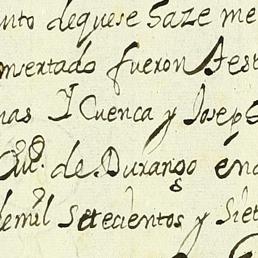 unto dequese haze me
nsertado fueron test
nas Y Cuenca y Joseph
Ciu.d de Durango én
demil setecientos y siet